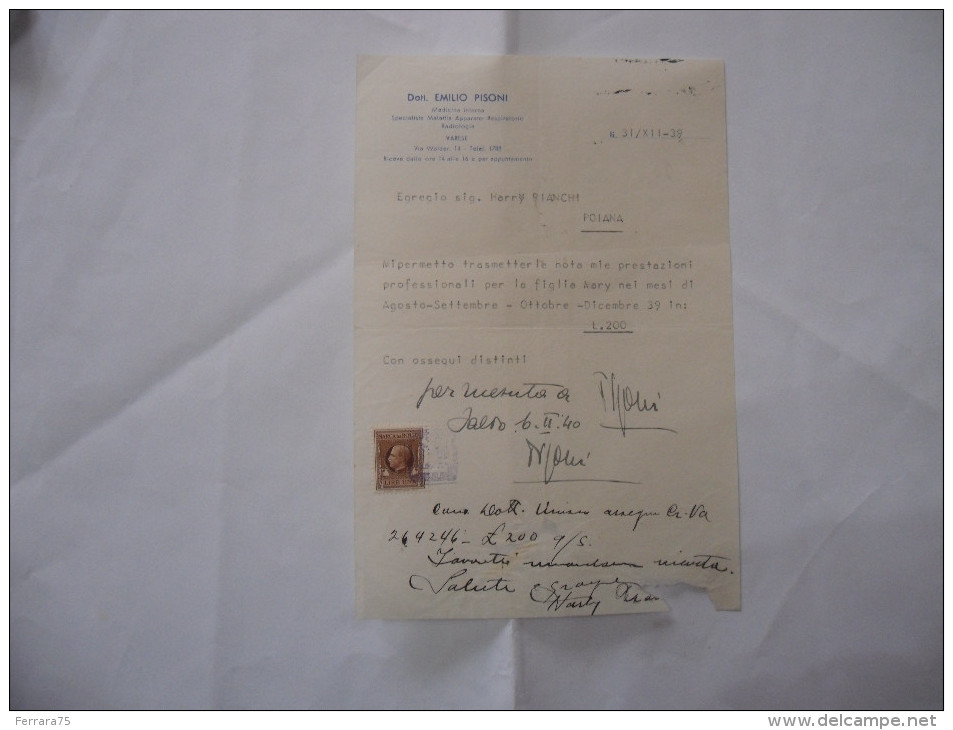 Dott. EMILIO PISONI
Medicina Interna
Specialista Malattie Apparato Respiratorio
Radiologia
VARESE
Via Walder, 16 - Telef. 1701
Riceve dalle ore 14 alle 16 e per appuntamento
31/XII-39
Egregio sig. Harry BIANCHI
POIANA
Mipermetto trasmetterle nota mie prestazioni
professionali per la figlia Mary nei mesi di
Agosto-Settembre - Ottobre -Dicembre 39 in:
L.200
Con ossequi distinti
Pisoni
Saldo 6.II.40
Pisoni
MARCA DA BOLLO
LIRE UNA
Caro Dott. Unisco assegno Cr. Va
264246 - £ 200 a/s.
Favorite rimandarmi
Saluti
Harry
Ferrara75
www.delcampe.net